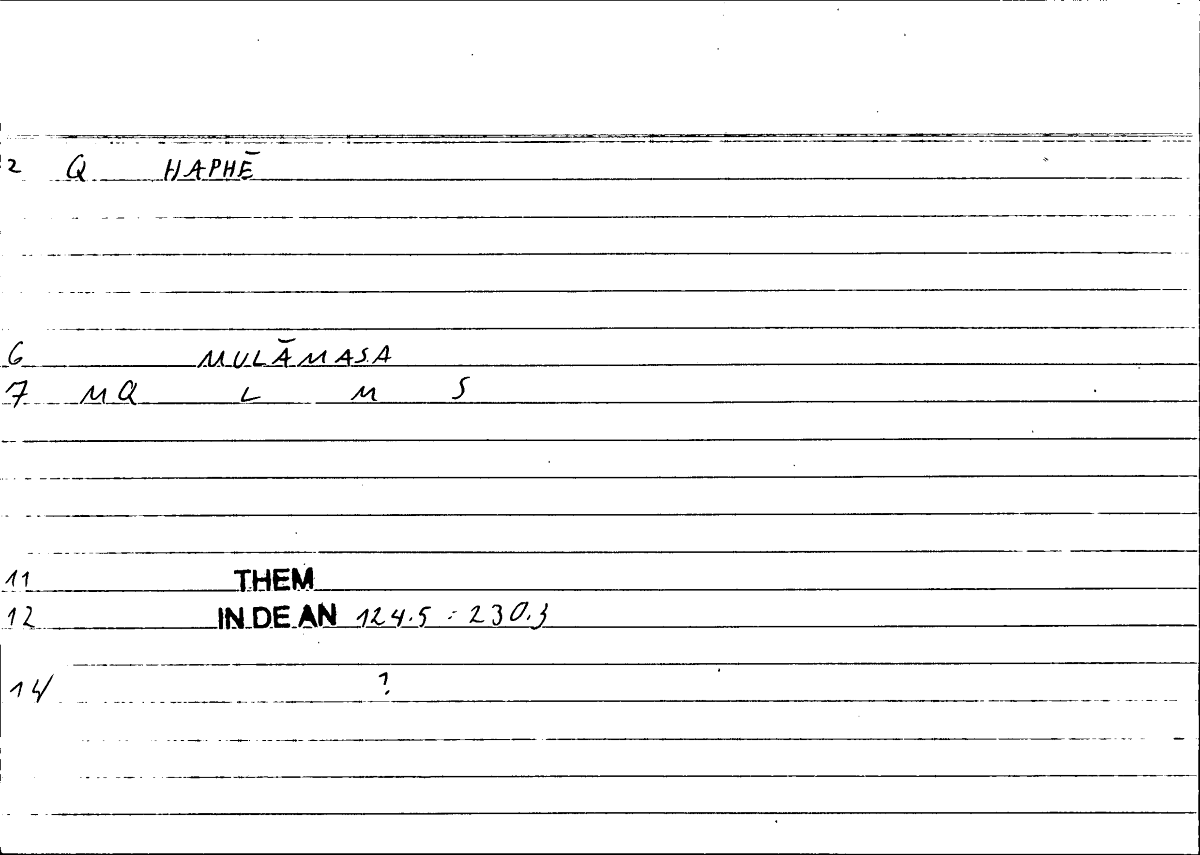 2 Q HAPHĒ
6 MULĀMASA
7 MQ L M S
11 THEM
12 IN DE AN 124.5 : 230.3
14 ?